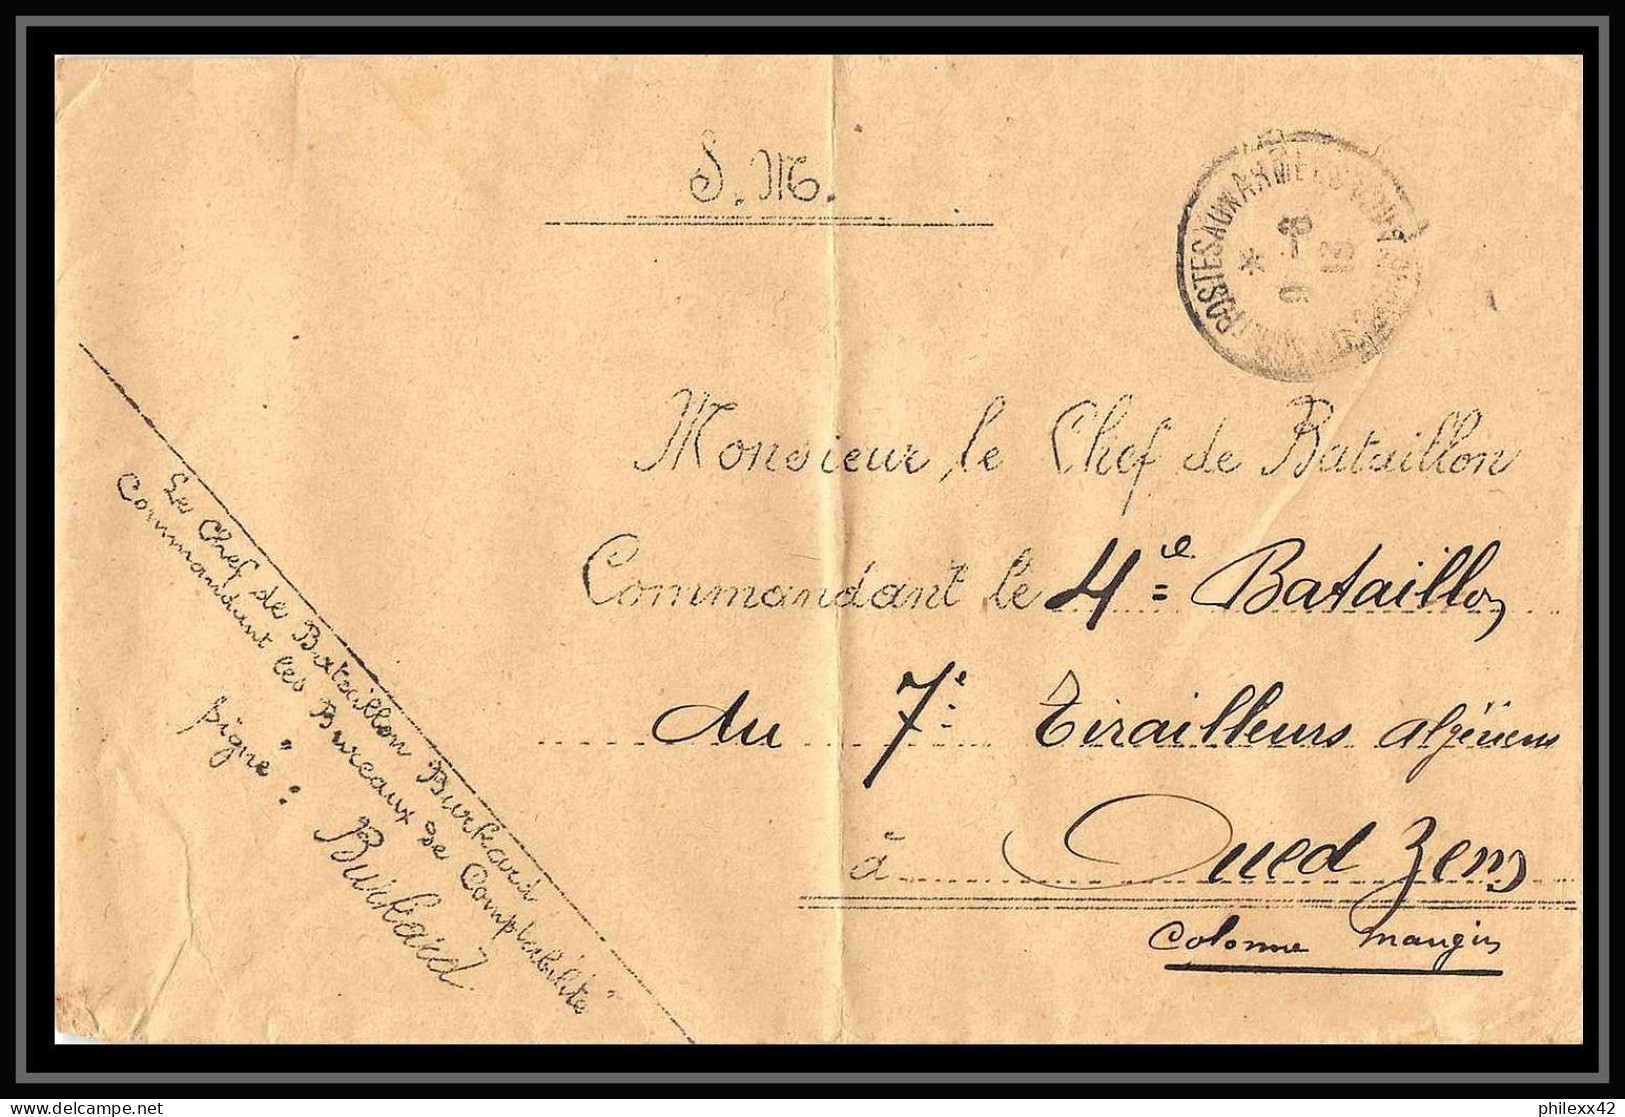 S. M.
TRESOR ET POSTES AUX ARMEES
* 9 - 6 13
Monsieur le Chef de Bataillon
Commandant le 4e Bataillon
du 7e Tirailleurs algériens
à Oued Zem
Colonne Mangin
Le Chef de Bataillon Burkard
Commandant les Bureaux de Comptabilité
signé : Burkard
philexx42